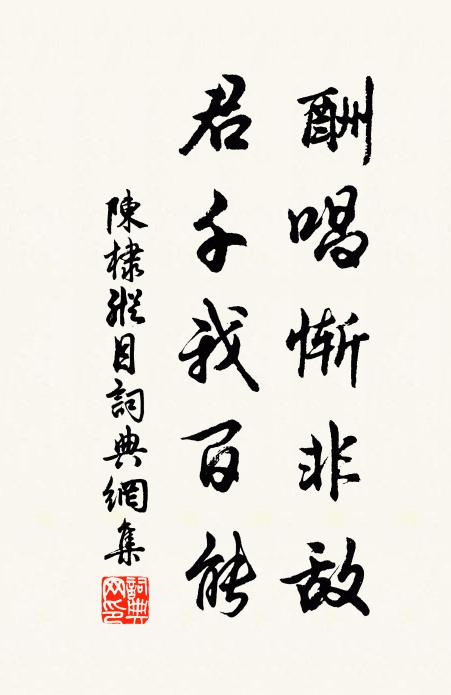 酬唱慚非敵
君千我百能
陳棣縱目詞典網集
詞典網印